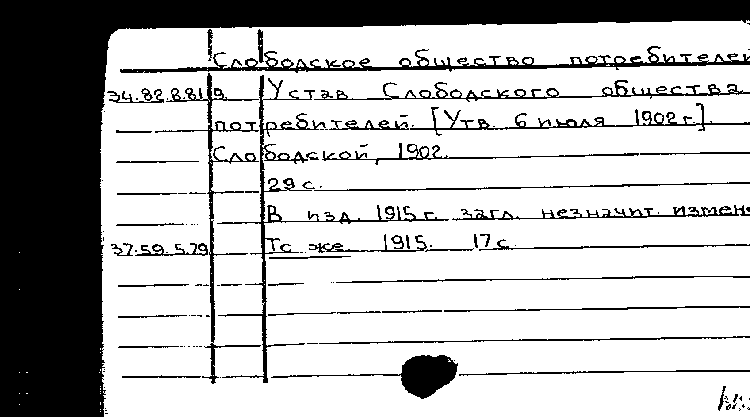 Слободское общество потребителей
34.82.8.81 9 Устав Слободского общества
потребителей. [Утв. 6 июля 1902 г.].
Слободской, 1902.
29 с.
В изд. 1915 г. загл. незначит. измен
37.59.5.79 То же 1915. 17 с